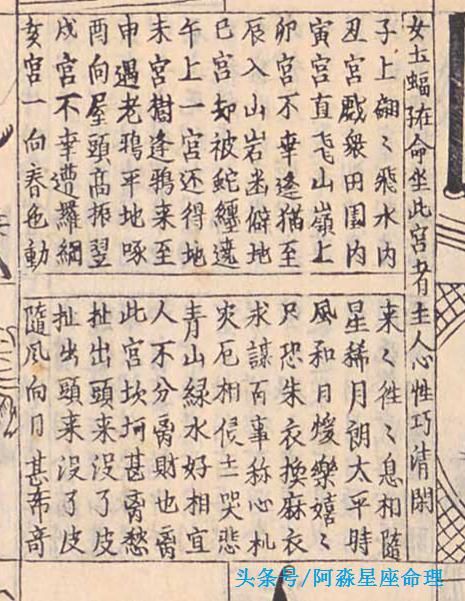 女土蝠在命坐此宮者主人心性巧清閑
子上翩〻飛水内
丑宮戲衆田園内
寅宮直飞山嶺上
卯宮不幸逢猫至
辰入山岩幽僻地
巳宮却被蛇纏遶
午上一宮还得地
未宮樹逢鴉来至
申遇老鴉平地啄
酉向屋頭高振翌
戌宮不幸遭羅網
亥宮一向春色動
来〻徃〻息相隨
星稀月朗太平時
風和日煖樂嬉〻
只恐朱衣換麻衣
求謀百事称心机
灾厄相侵主哭悲
青山緑水好相宜
人不分离財也离
此宮坎坷甚愁
扯出頭来没了皮
扯出頭来没了皮
隨风向日甚希奇
头条号/阿淼星座命理